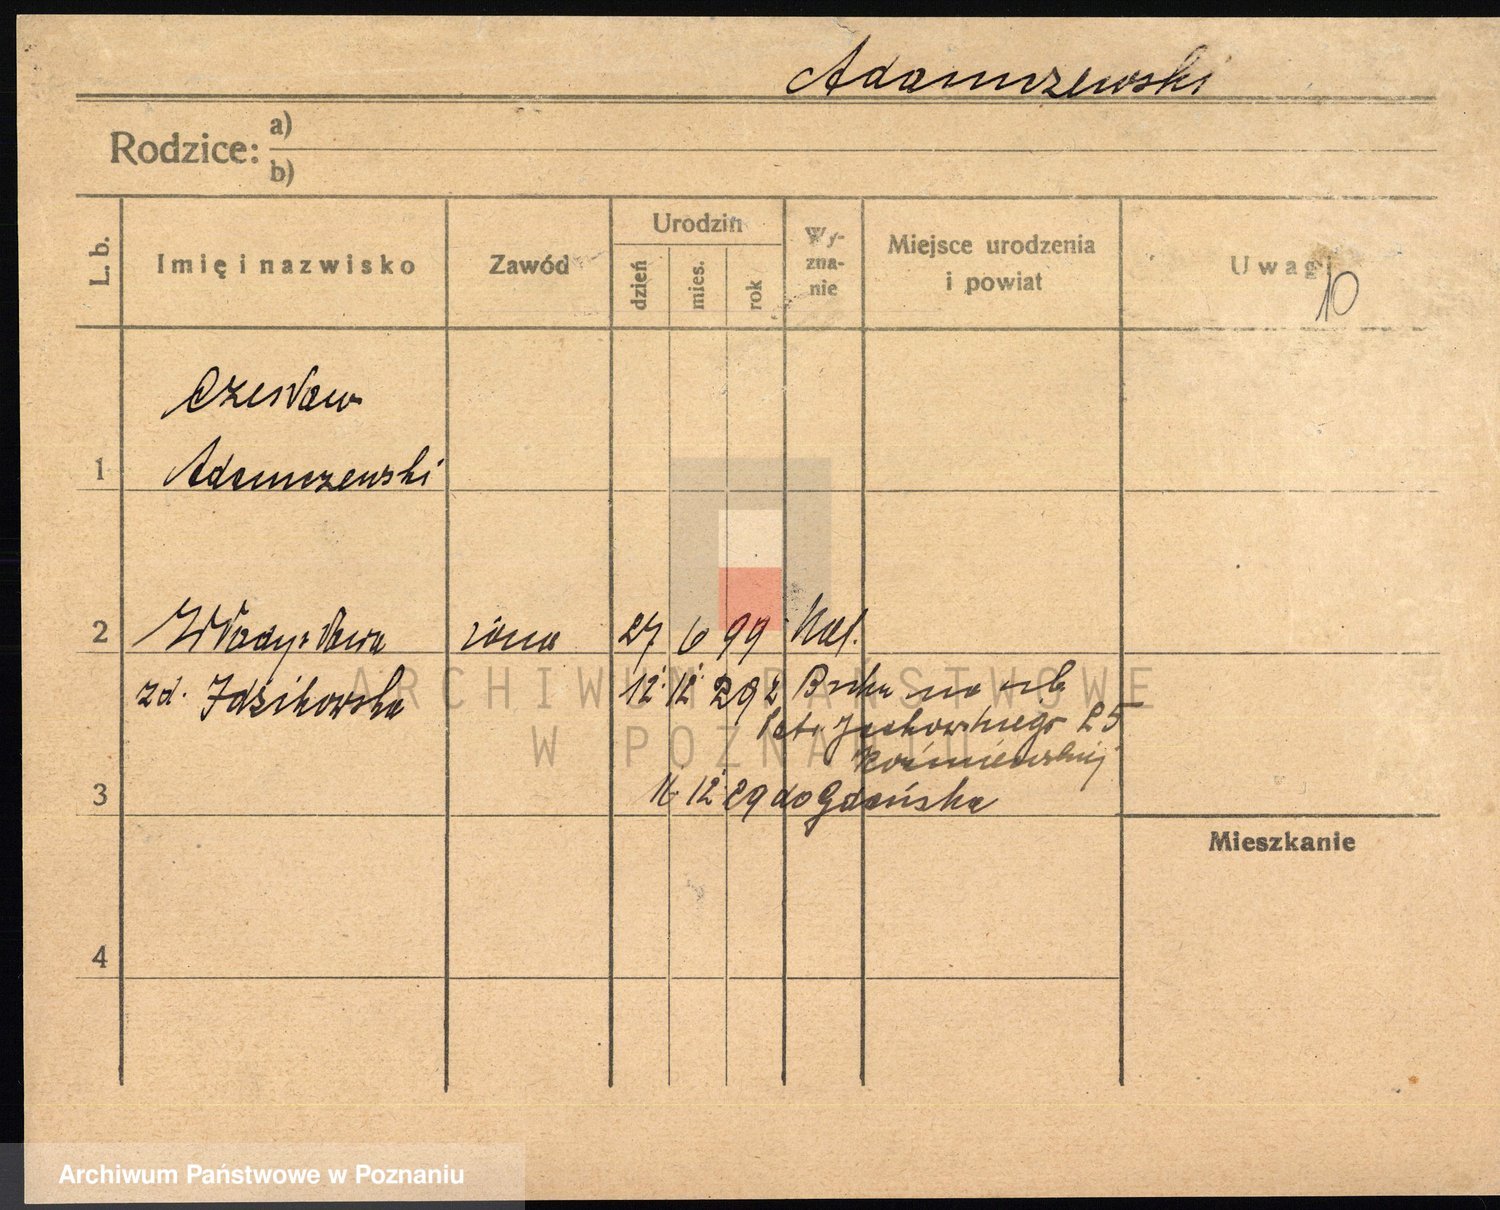 Adamczewski
Rodzice: a)
b)
L. b.
Imię i nazwisko
Zawód
Urodzin
dzień
mies.
rok
Wy-
zna-
nie
Miejsce urodzenia
i powiat
Uwagi
10
Czesław
1 Adamczewski
2 Władysława żona 27 6 99 Kat.
zd. Idzikowska 12 12 29 z
25
3 16 12 29 do Gdańska
Mieszkanie
4
ARCHIWUM PAŃSTWOWE
W POZNANIU
Archiwum Państwowe w Poznaniu